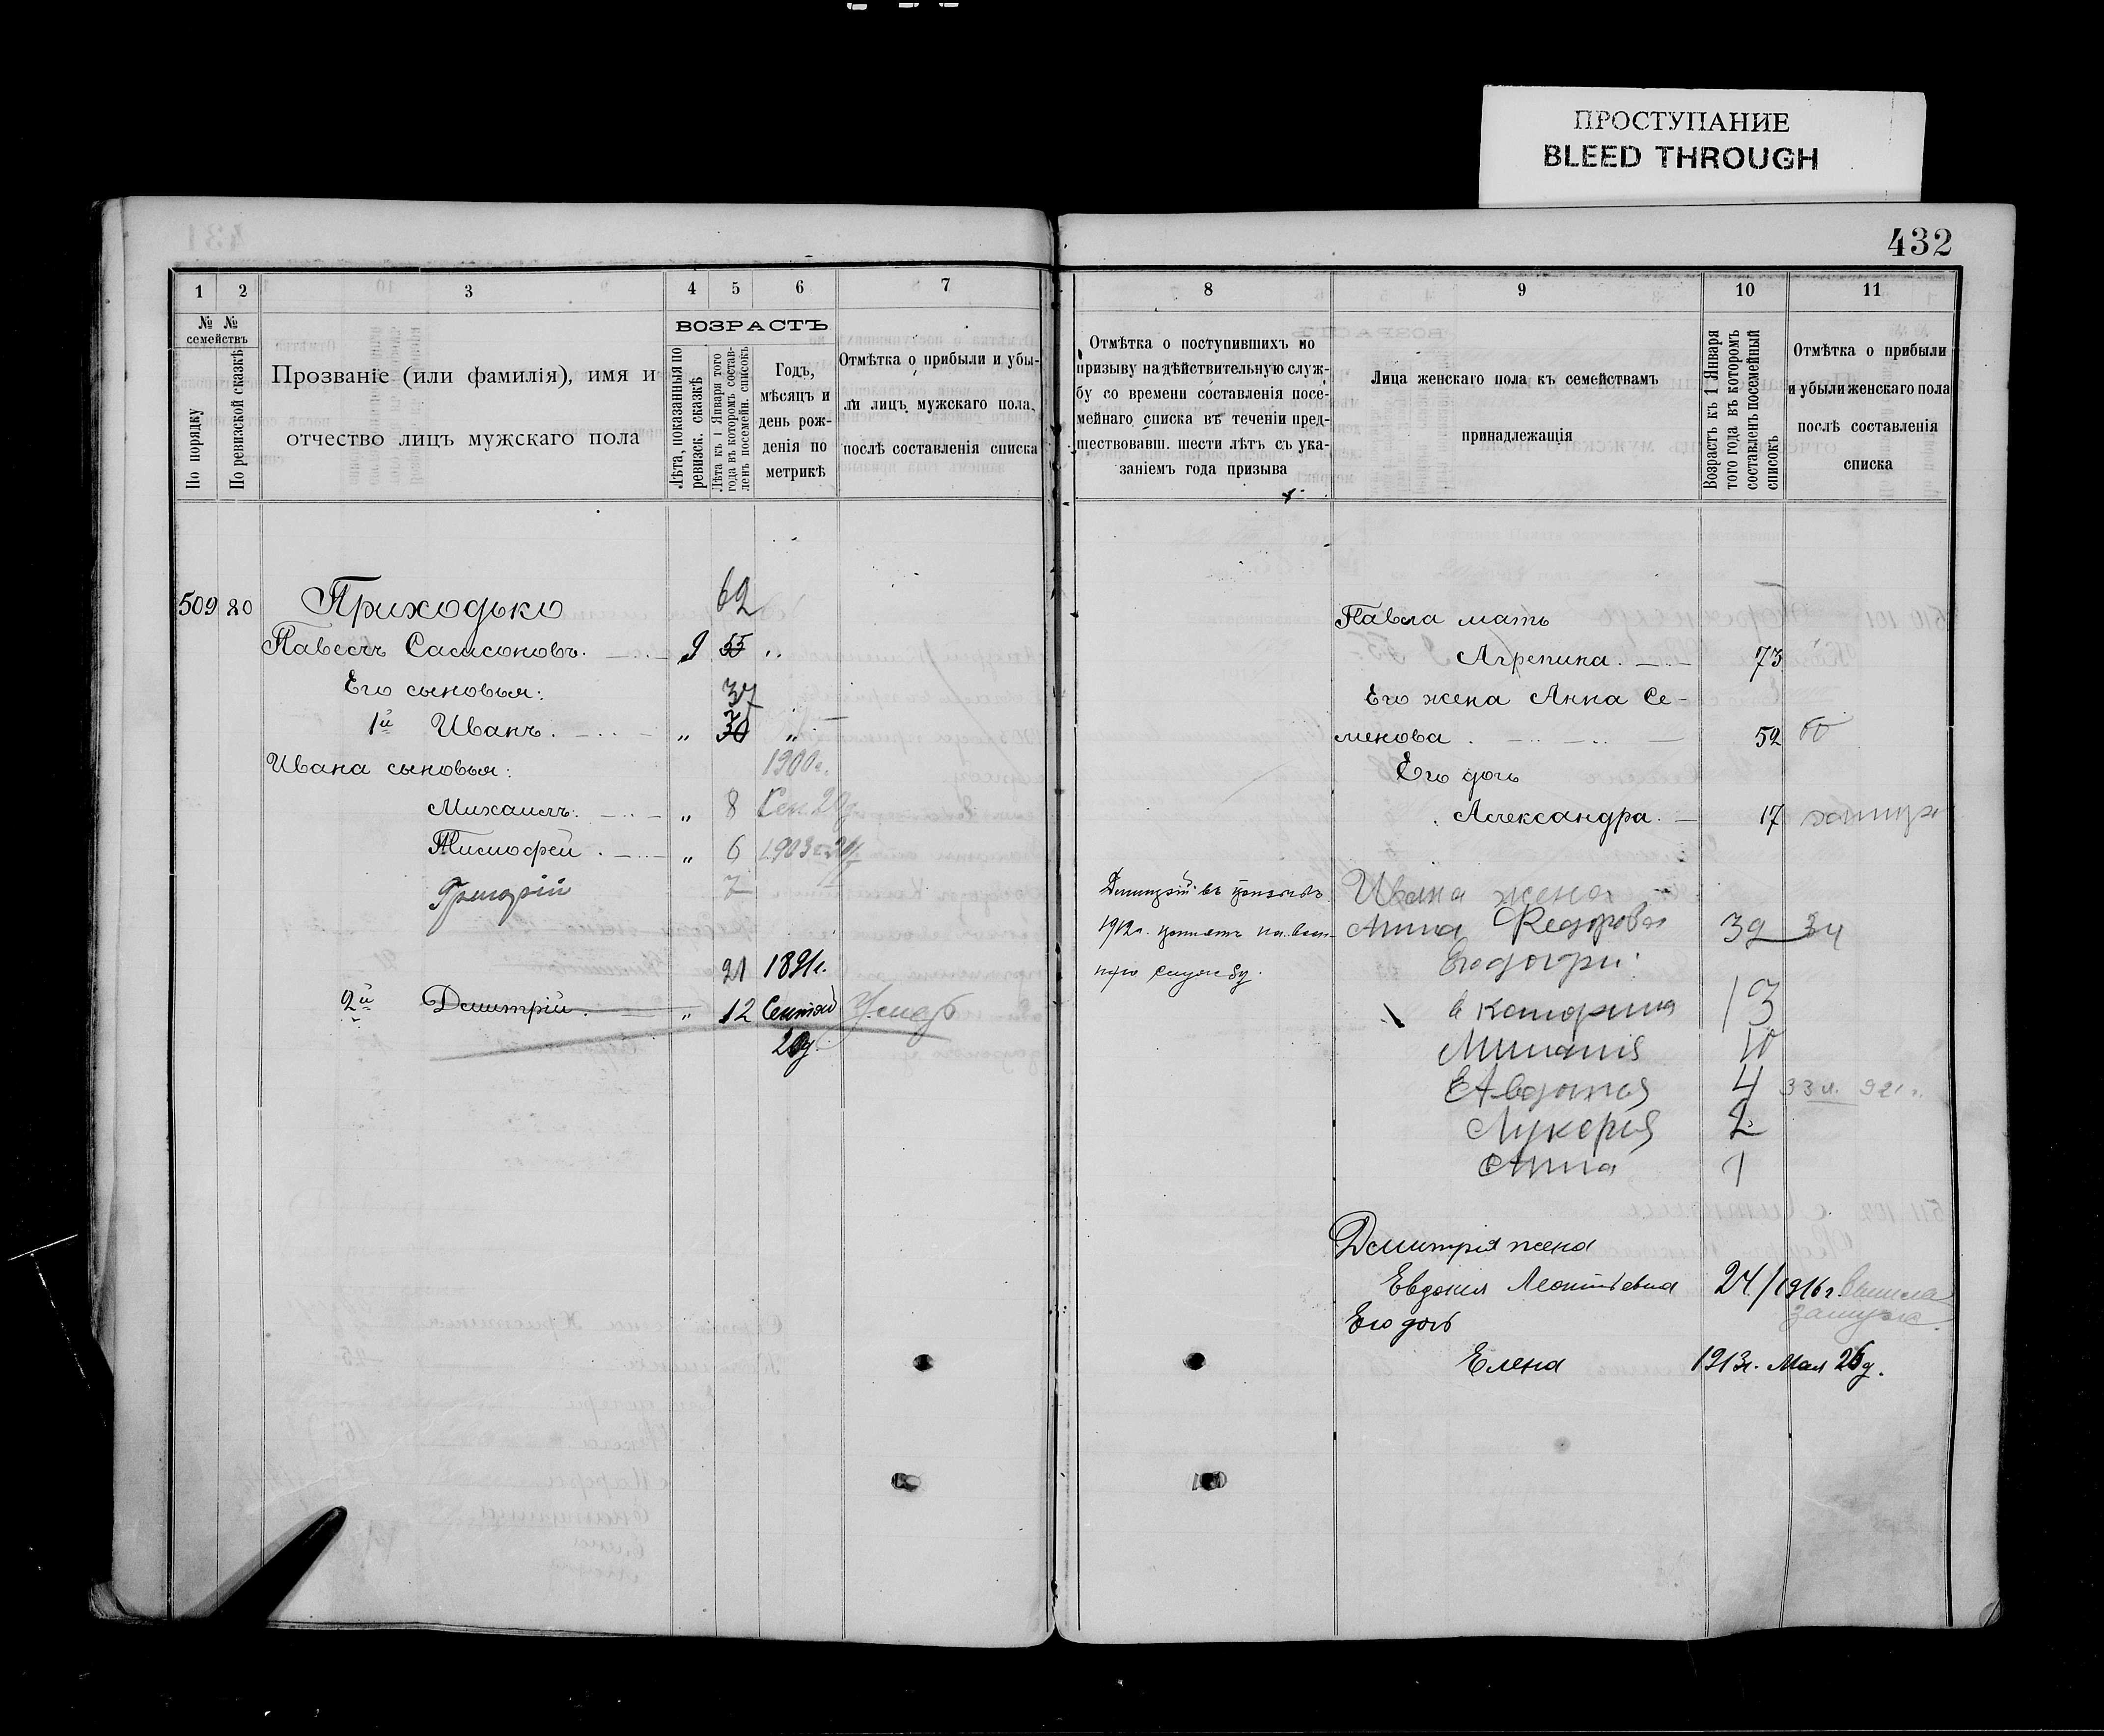 ПРОСТУПАНИЕ
BLEED THROUGH
431
1 2 3 4 5 6 7
№ № семействъ
По порядку
По ревизской сказкѣ
Прозваніе (или фамилія), имя и
отчество лицъ мужскаго пола
ВОЗРАСТЪ
Лѣта, показанныя по
ревизск. сказкѣ
Лѣта къ 1 Января того
года въ которомъ состав-
ленъ посемейн. списокъ
Годъ,
мѣсяцъ и
день рож-
денія по
метрикѣ
Отмѣтка о прибыли и убы-
ли лицъ мужскаго пола,
послѣ составленія списка
509 80 Приходько 62
Павелъ Самсоновъ. 9 55 „
Его сыновья: 37
1й Иванъ. „ 30 „
Ивана сыновья: 1900г.
Михаилъ. „ 8 Сен. 20д
Тимофей. „ 6 1903г.
Григорій 7
21 1891г.
2й Дмитрій. „ 12
20д.
432
8 9 10 11
Отмѣтка о поступившихъ по
призыву на дѣйствительную служ-
бу со времени составленія посе-
мейнаго списка въ теченіи пред-
шествовавш. шести лѣтъ съ ука-
заніемъ года призыва
Лица женскаго пола къ семействамъ
принадлежащія
Возрастъ къ 1 Января
того года въ которомъ
составленъ посемейный
списокъ
Отмѣтка о прибыли
и убыли женскаго пола
послѣ составленія
списка
Павла мать
Агрепина. 73
Его жена Анна Се-
менова 52
Его дочь
Александра. 17 замуж
Дмитрій въ
1912г. принятъ на воен-
ную службу.
Ивана жена
Анна Федорова 39 34
Его дочери:
Катерина 13
Миланія 10
Авдотия 4 33 л. 921 г.
Лукерия 2
Анна 1
Дмитрія жена
Евдокия Леонтьевна 24/1916г. вышла
замуж.
Его дочь
Елена 1913г. Мая 26д.